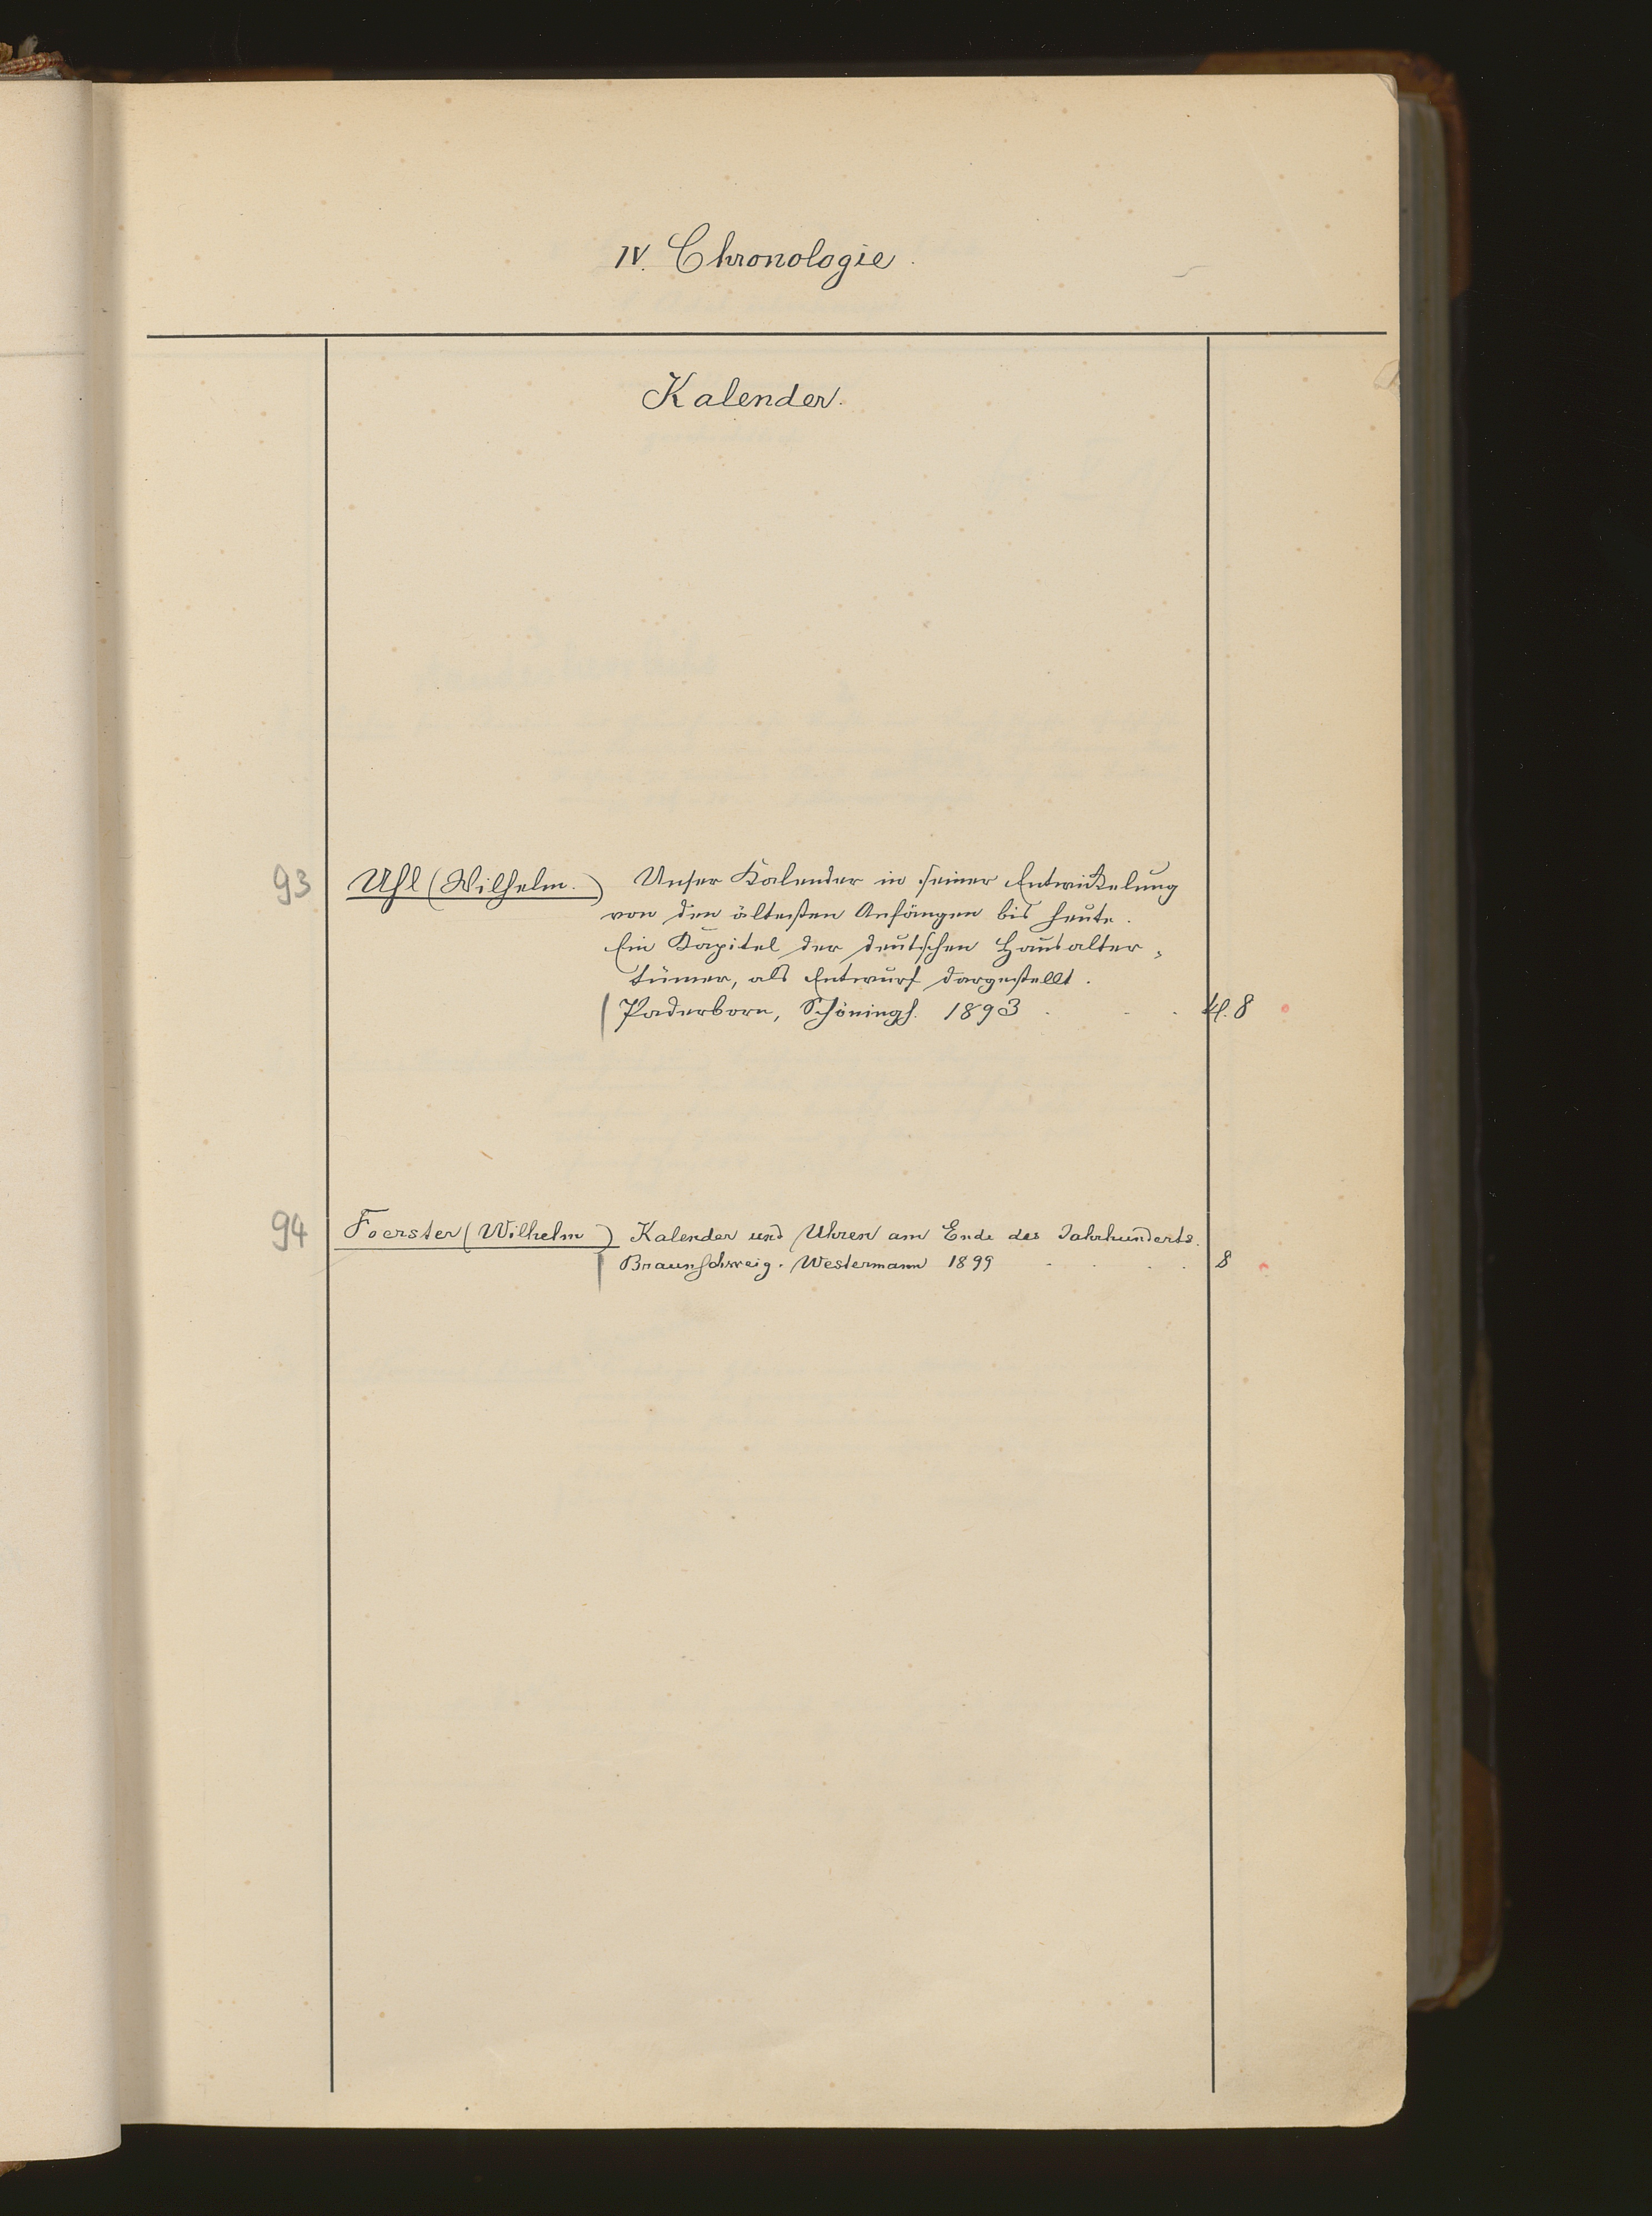 IV. Chronologie.
Kalender.
93 Uhl (Wilhelm.) Unser Kalender in seiner Entwickelung
von den ältesten Anfängen bis heute.
Ein Kapitel der deutschen Hausalter-
tümer, als Entwurf dargestellt.
Paderborn, Schöningh. 1893 . . . kl. 8
94 Foerster (Wilhelm) Kalender und Uhren am Ende des Jahrhunderts.
Braunschweig. Westermann 1899 . . . . 8